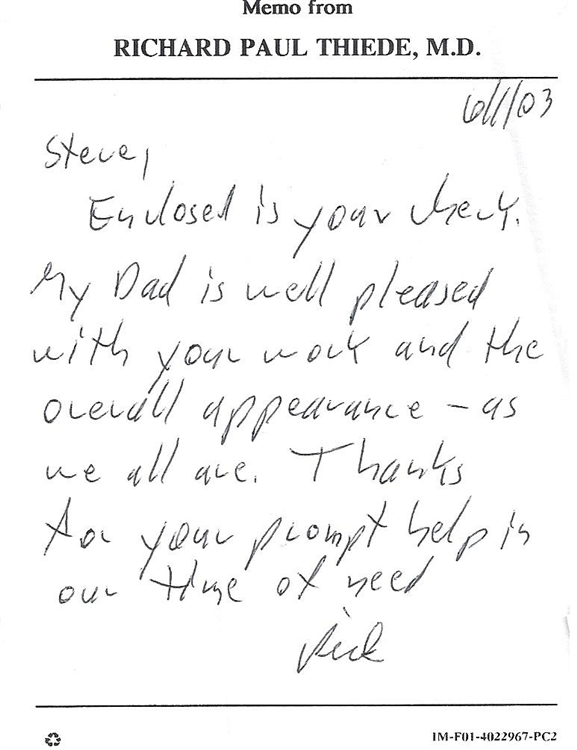 Memo from
RICHARD PAUL THIEDE, M.D.
6/1/03
Steve,
Enclosed is your check.
My Dad is well pleased
with your work and the
overall appearance – as
we all are. Thanks
for your prompt help in
our time of need
Rick
IM-F01-4022967-PC2